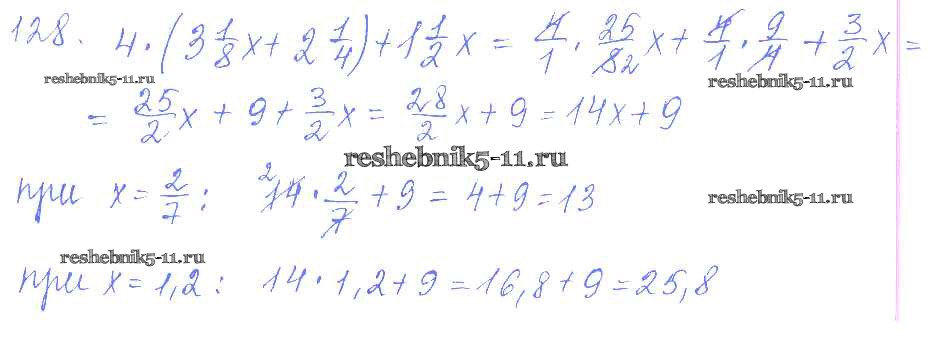 128. 4 · (3 1/8 x + 2 1/4) + 1 1/2 x = 4/1 · 25/82 x + 4/1 · 9/4 + 3/2 x =
reshebnik5-11.ru
reshebnik5-11.ru
= 25/2 x + 9 + 3/2 x = 28/2 x + 9 = 14x + 9
reshebnik5-11.ru
при x = 2/7 ; 2 14 · 2/7 + 9 = 4 + 9 = 13
reshebnik5-11.ru
reshebnik5-11.ru
при x = 1,2 : 14 · 1,2 + 9 = 16,8 + 9 = 25,8